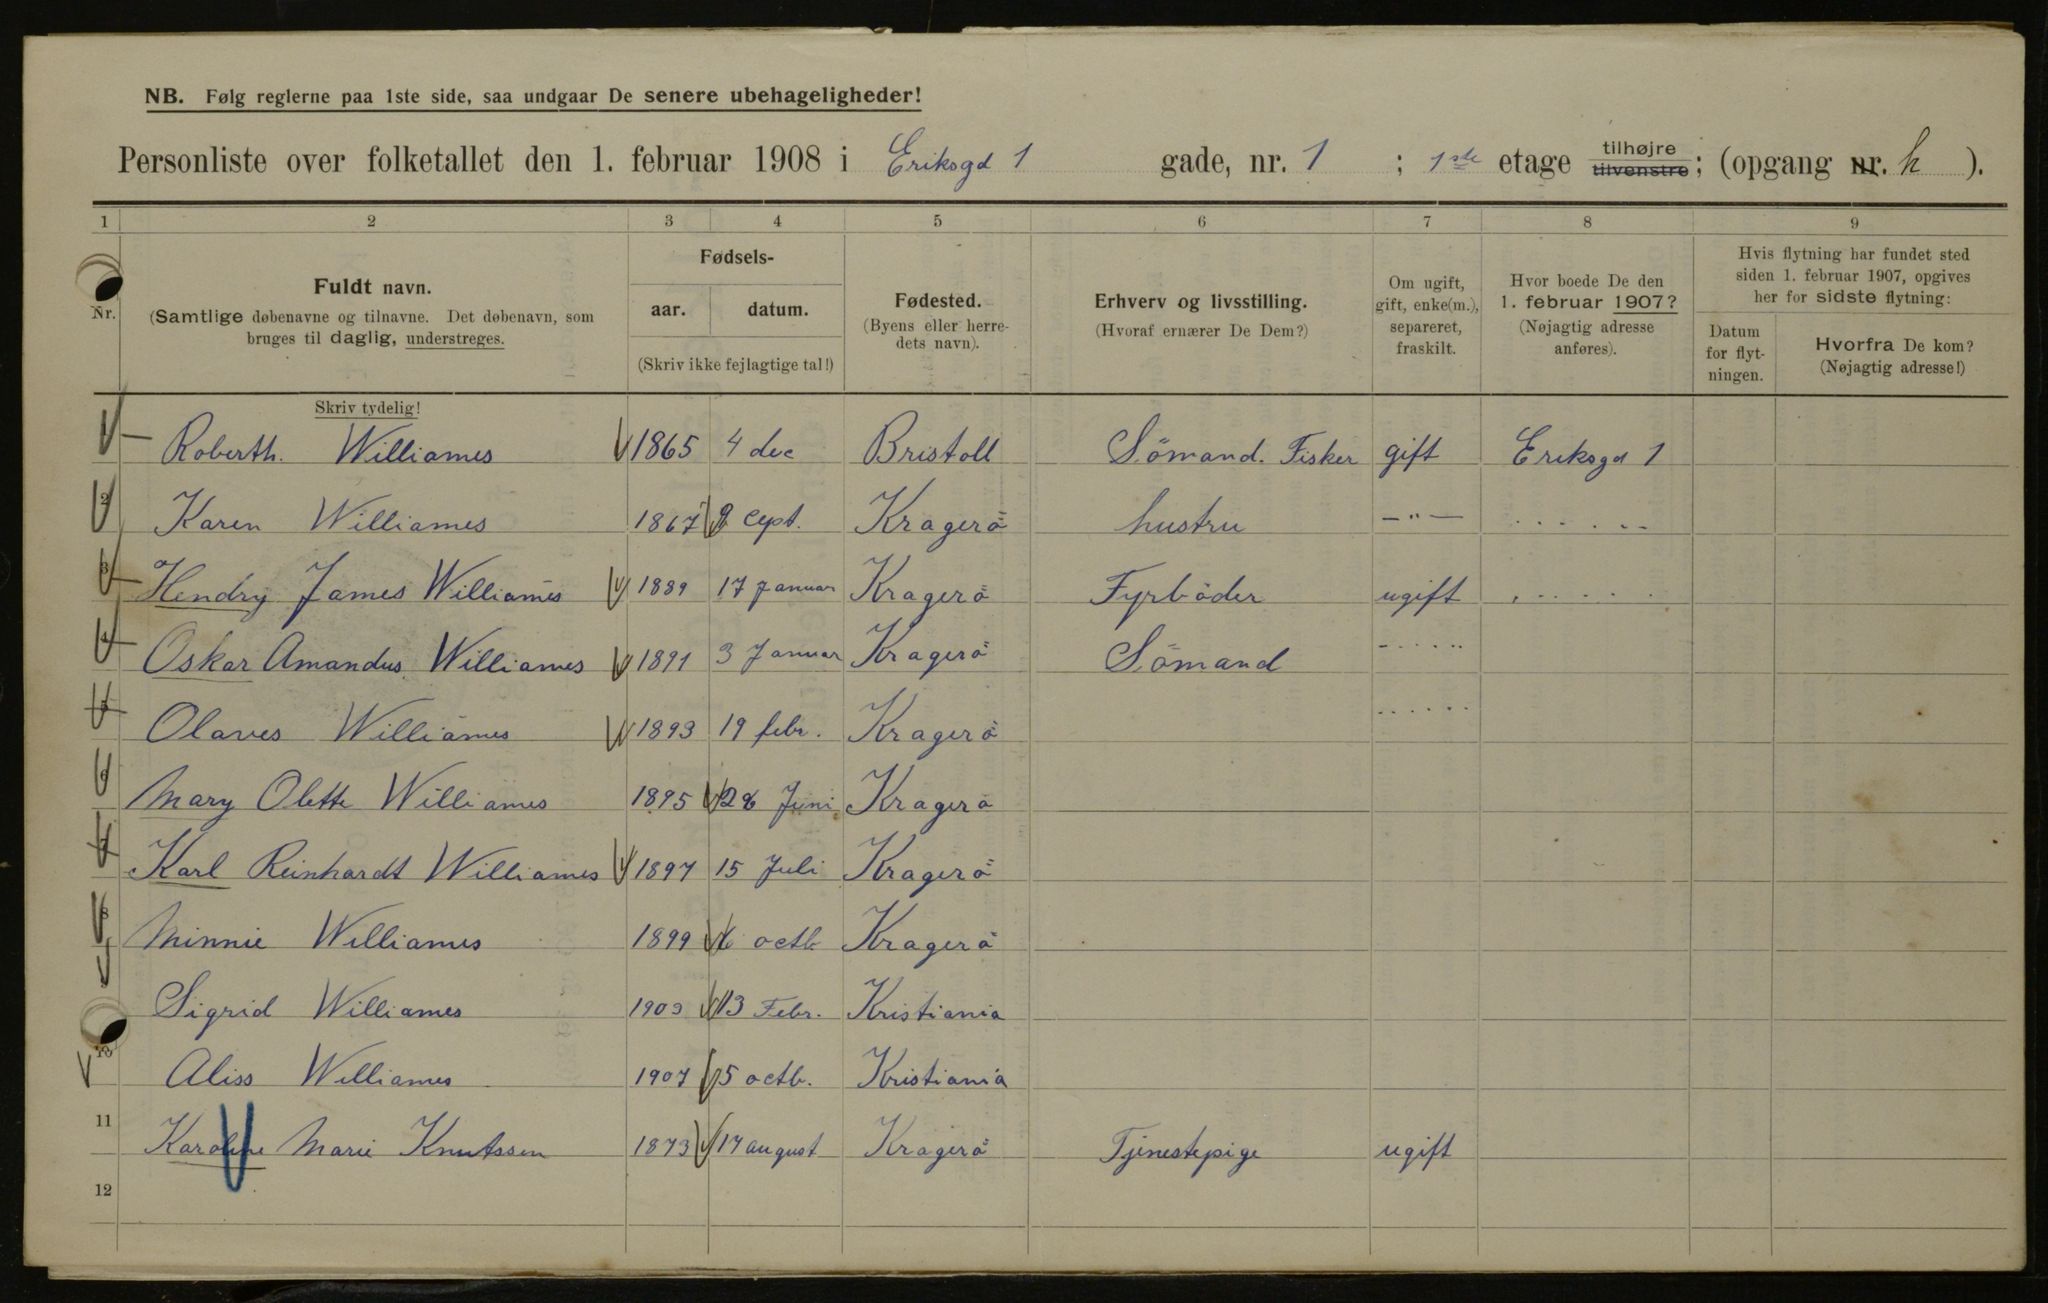 NB. Følg reglerne paa 1ste side, saa undgaar De senere ubehageligheder!
Personliste over folketallet den 1. februar 1908 i Eriksgd 1 gade, nr. 1 ; 1ste etage tilhøjre tilvenstre; (opgang nr. h ).
1 2 3 4 5 6 7 8 9
Nr.
Fuldt navn.
(Samtlige døbenavne og tilnavne. Det døbenavn, som
bruges til daglig, understreges.
Skriv tydelig!
Fødsels-
aar. datum.
(Skriv ikke fejlagtige tal!)
Fødested.
(Byens eller herre-
dets navn).
Erhverv og livsstilling.
(Hvoraf ernærer De Dem?)
Om ugift,
gift, enke(m.),
separeret,
fraskilt.
Hvor boede De den
1. februar 1907?
(Nøjagtig adresse
anføres).
Hvis flytning har fundet sted
siden 1. februar 1907, opgives
her for sidste flytning:
Datum
for flyt-
ningen.
Hvorfra De kom?
(Nøjagtig adresse!)
Roberth. Williames 1865 4 dec Bristoll Sömand. Fisker gift Eriksgd 1
2 Karen Williames 1867 9 Cept. Kragerö hustru —"— . . . . . .
3 Hendry James Williames 1889 17 Januar Kragerö Fyrböder ugift . . . . . .
4 Oskar Amandus. Williames 1891 3 Januar Kragerö Sömand . . . . . .
5 Olaves Williames 1893 19 febr. Kragerö . . . . . .
6 Mary Olette Williames 1895 28 Juni Kragerö
7 Karl Reinhardt Williames 1897 15 Juli Kragerö
8 Minnie Williames 1899 6 octb Kragerö
Sigrid Williames 1903 13 Febr. Kristiania
10 Aliss Williames 1907 5 octb. Kristiania
11 Karoline Marie Knutssen 1873 17 august Kragerö Tjenestepige ugift
12